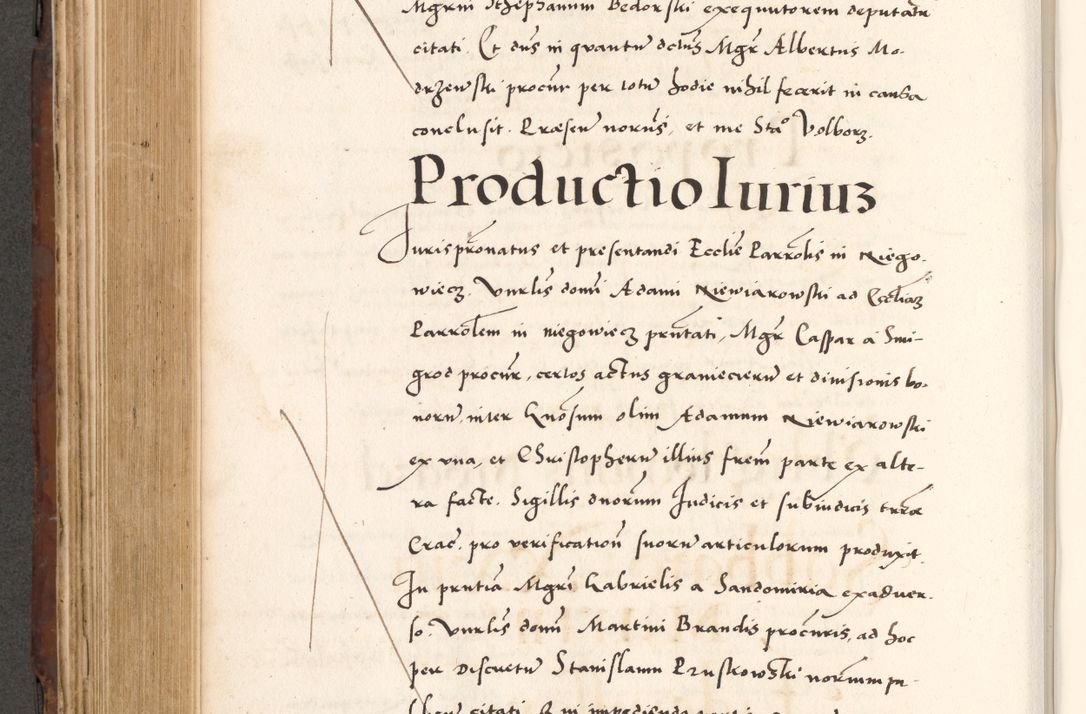 Mgrm Stephanum Bedorski exequutorem deputatu
citati. Et dns in quantu dctus Mgr Albertus Mo-
drzewski procur per totu hodie nihil fecerit in causa
conclusit. Præsen norus, et me Sta° Volborz.
Productio Iuriuz
Jurispronatus et presentandi Ecclie Parrolis in Niego-
wiecz. Vnrlis domi Adami Niewiarowski ad Eccliaz
Parrolem in niegowiecz prntati, Mgr Caspar a Smi-
grod procur, certos actus granicieru et diuisionis bo-
noru, inter Gnosum olim Adamum Niewiarowski
ex vna, et Christopheru illius frem parte ex alte-
ra facte. Sigillis dnorum Judicis et subiudicis terræ
Crac. pro verification suoru articulorum produxit.
In prntia Mgri Gabrielis a Sandomiria exaduer-
so. Vnrlis domi Martini Brandis procuris, ad hoc
per discretu Stanislaum Pruskowski norium pu-
citati. Qui impediendo